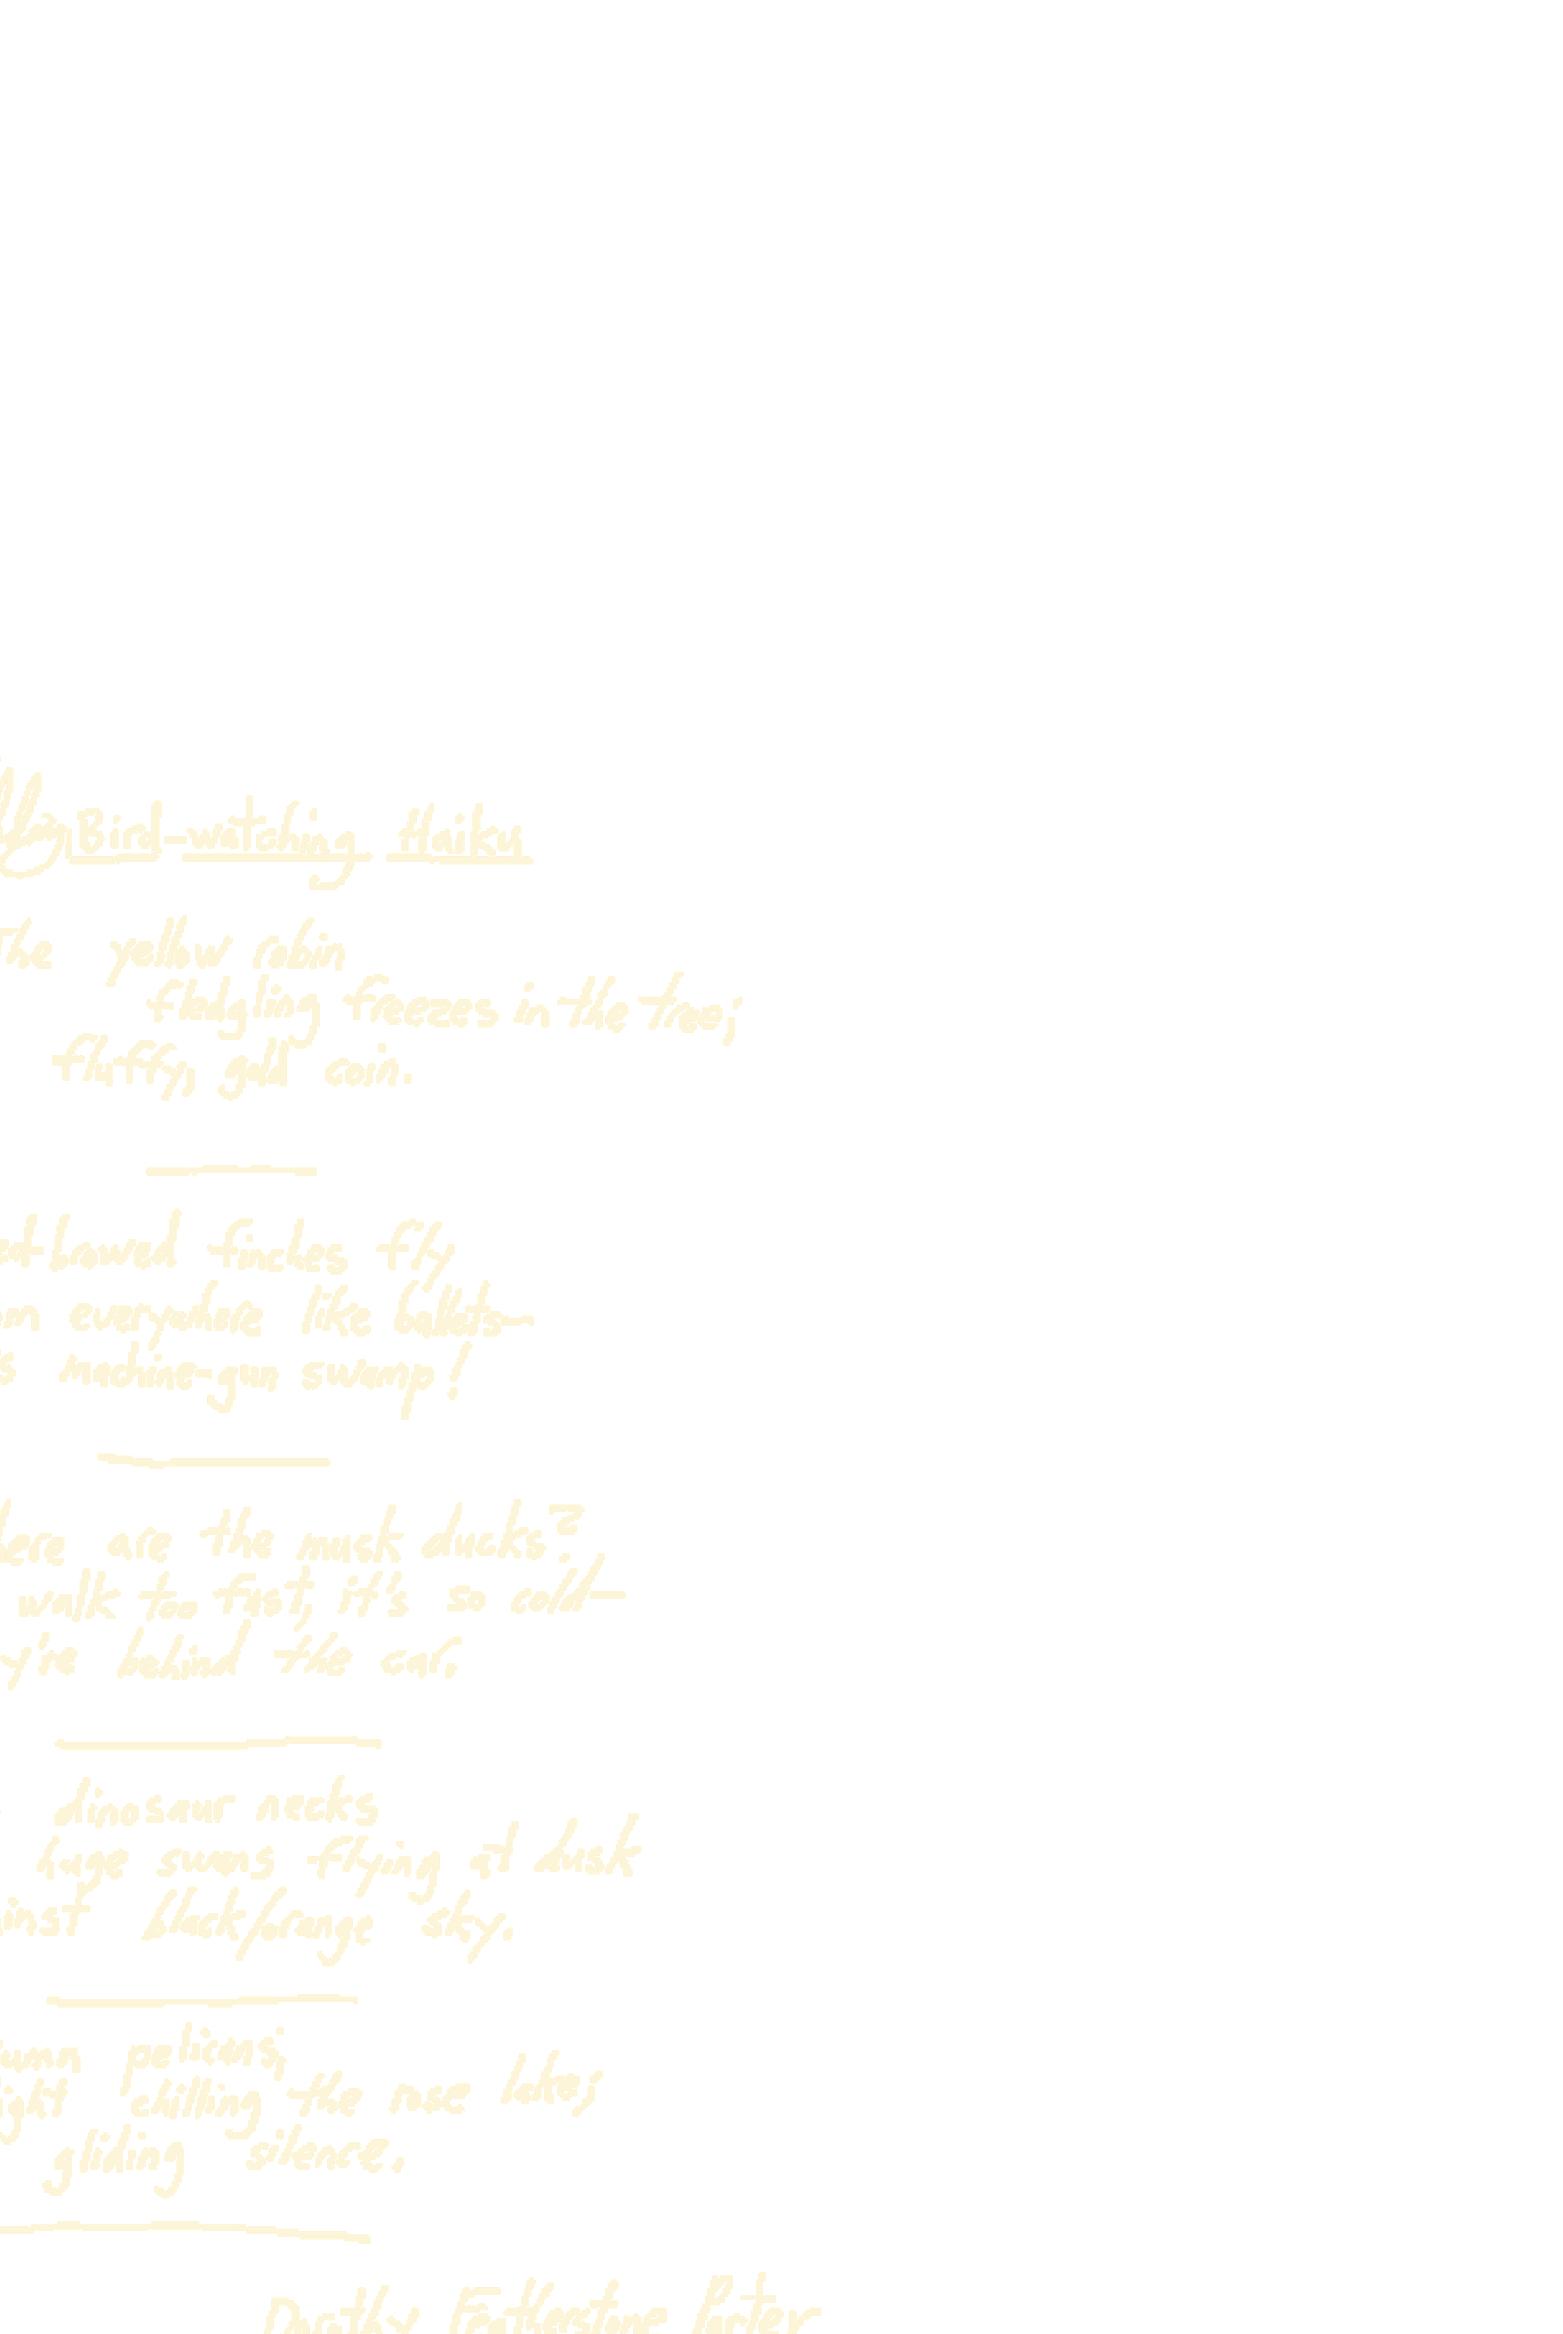 Bird-watching Haiku
The yellow robin
fledgling freezes in the tree;
fluffy, gold coin.
browed finches fly
everywhere like bullets—
machine-gun swamp!
are the musk ducks?
walk too fast, it's so cold—
behind the car.
dinosaur necks
huge swans flying at dusk
black/orange sky.
pelicans;
chilling the rose lake;
gliding silence.
Dorothy Featherstone Porter